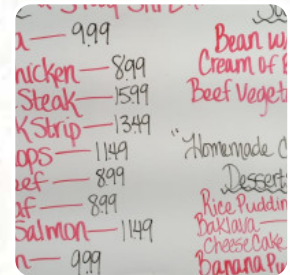 9.99
hicken — 8.99
Steak — 15.99
K Strip — 13.49
ops — 11.49
eef — 8.99
af — 8.99
Salmon — 11.49
n — 9.99
Bean w
Cream of B
Beef Veget
"Homemade C
Dessert
Rice Puddin
Baklava
Cheese Cake
Banana Pu